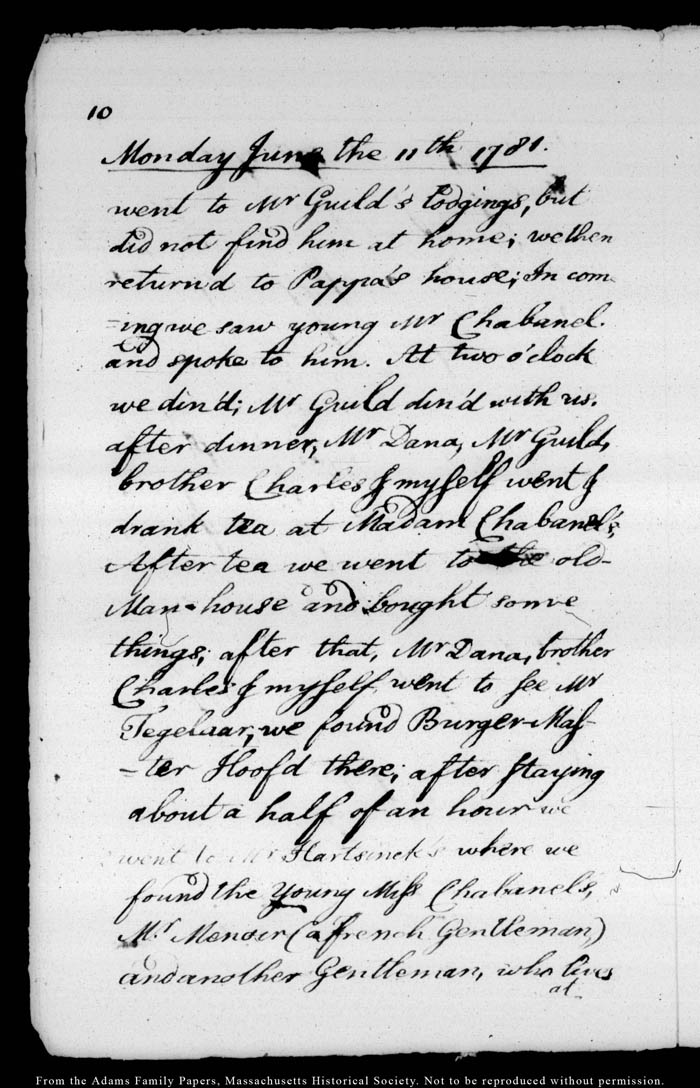 10
Monday June the 11th 1781.
went to Mr Guild's lodgings, but
did not find him at home; we then
return'd to Pappa's house; In com-
=ing we saw young Mr Chabanel.
and spoke to him. At two o'clock
we din'd; Mr Guild din'd with us.
after dinner, Mr Dana, Mr Guild,
brother Charles & myself went &
drank tea at Madam Chabanel's,
After tea we went to the old-
Man-house and bought some
things; after that, Mr Dana, brother
Charles & myself went to see Mr
Tegelaar; we found Burger-Mas-
-ter Hoofd there; after staying
about a half of an hour we
went to Mr Hartsinck's where we
found the Young Miss Chabanel's,
Mr. Menoir (a french Gentleman,)
and another Gentleman, who lives
at
From the Adams Family Papers, Massachusetts Historical Society. Not to be reproduced without permission.